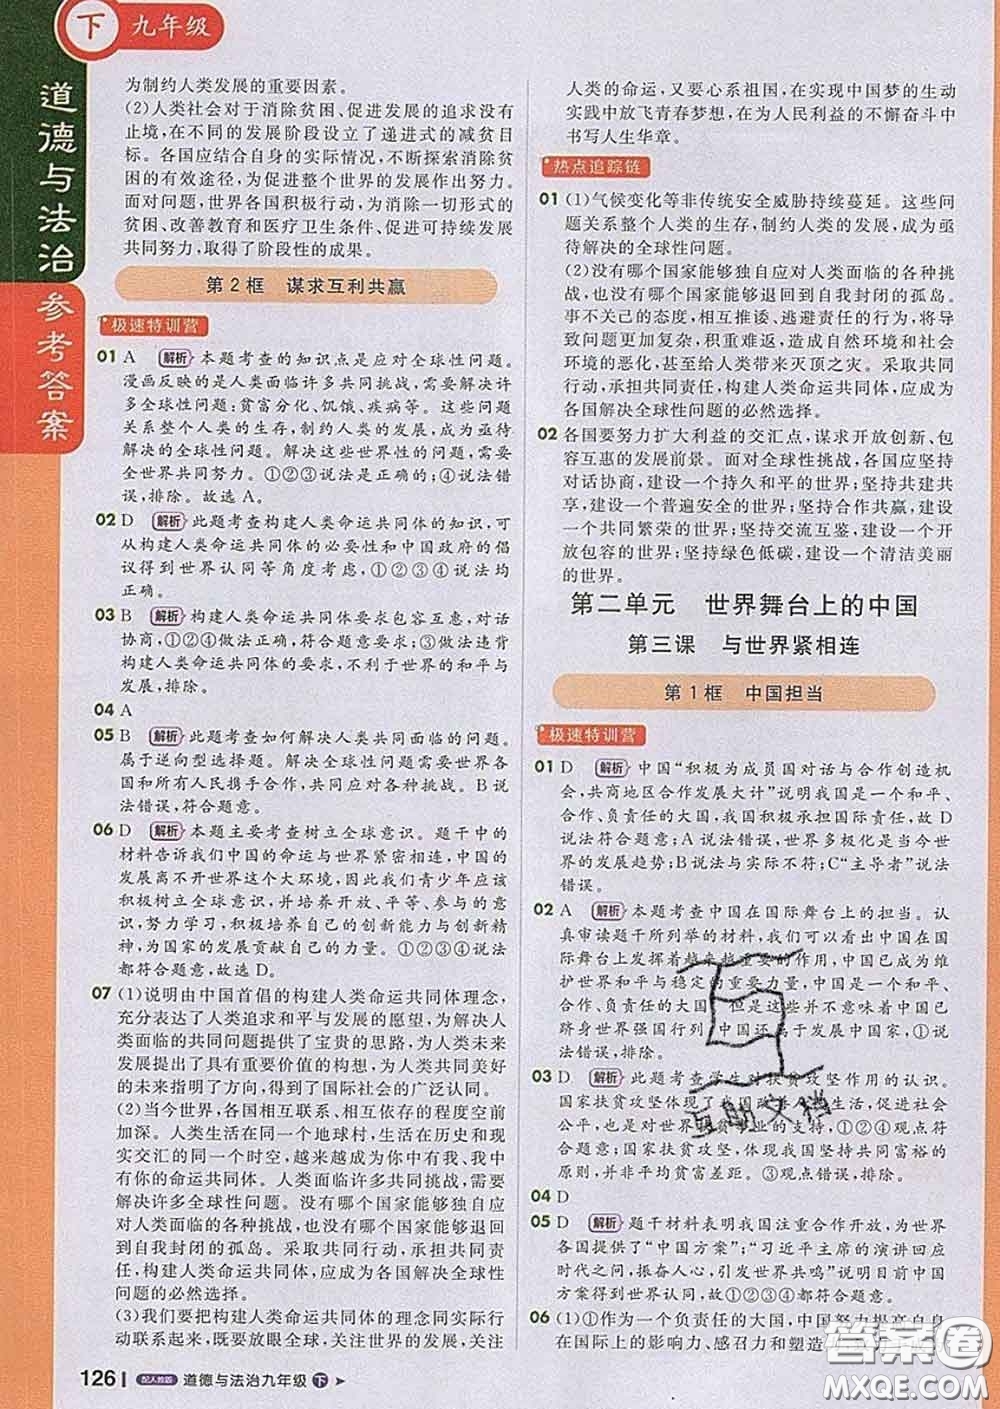 下 九年级
道德与法治
参考答案
为制约人类发展的重要因素。
(2)人类社会对于消除贫困、促进发展的追求没有
止境,在不同的发展阶段设立了递进式的减贫目
标。各国应结合自身的实际情况,不断探索消除贫
困的有效途径,为促进整个世界的发展作出努力。
面对问题,世界各国积极行动,为消除一切形式的
贫困、改善教育和医疗卫生条件、促进可持续发展
共同努力,取得了阶段性的成果。
第2框 谋求互利共赢
极速特训营
01 A 解析 本题考查的知识点是应对全球性问题。
漫画反映的是人类面临许多共同挑战,需要解决许
多全球性问题:贫富分化、饥饿、疾病等。这些问题
关系整个人类的生存,制约人类的发展,成为亟待
解决的全球性问题。解决这些世界性的问题,需要
全世界共同努力。①②③说法是正确的;④说法错
误,排除。故选A。
02 D 解析 此题考查构建人类命运共同体的知识,可
从构建人类命运共同体的必要性和中国政府的倡
议得到世界认同等角度考虑,①②③④说法均
正确。
03 B 解析 构建人类命运共同体要求包容互惠,对话
协商,①②④做法正确,符合题意要求;③做法违背
构建人类命运共同体的要求,不利于世界的和平与
发展,排除。
04 A
05 B 解析 此题考查如何解决人类共同面临的问题。
属于逆向型选择题。解决全球性问题需要世界各
国和所有人民携手合作,共同应对挑战。B说
法错误,符合题意。
06 D 解析 本题主要考查树立全球意识。题干中的
材料告诉我们中国的命运与世界紧密相连,中国的
发展离不开世界这个大环境,因此我们青少年应该
积极树立全球意识,并培养开放、平等、参与的意
识,努力学习,积极培养自己的创新能力与创新精
神,为国家的发展贡献自己的力量。①②③④说法
都符合题意,故选D。
07 (1)说明由中国首倡的构建人类命运共同体理念,
充分表达了人类追求和平与发展的愿望,为解决人
类面临的共同问题提供了宝贵的思路,为人类未来
发展提出了具有重要价值的构想,为人类共同美好
的未来指明了方向,得到了国际社会的广泛认同。
(2)当今世界,各国相互联系、相互依存的程度空前
加深。人类生活在同一个地球村,生活在历史和现
实交汇的同一个时空,越来越成为你中有我、我中
有你的命运共同体。人类面临许多共同挑战,需要
解决许多全球性问题。没有哪个国家能够独自应
对人类面临的各种挑战,也没有哪个国家能够退回
自我封闭的孤岛。采取共同行动,承担共同责任,
构建人类命运共同体,应成为各国解决全球性问题
的必然选择。
(3)我们要把构建人类命运共同体的理念同实际行
动联系起来,既要放眼全球,关注世界的发展,关注
人类的命运,又要心系祖国,在实现中国梦的生动
实践中放飞青春梦想,在为人民利益的不懈奋斗中
书写人生华章。
热点追踪链
01 (1)气候变化等非传统安全威胁持续蔓延。这些问
题关系整个人类的生存,制约人类的发展,成为亟
待解决的全球性问题。
(2)没有哪个国家能够独自应对人类面临的各种挑
战,也没有哪个国家能够退回自我封闭的孤岛。
事不关己的态度,相互推卸责任的行为,将导致
问题更加复杂,积重难返,造成自然环境和社会
环境的恶化,甚至给人类带来灭顶之灾。采取共同
行动,承担共同责任,构建人类命运共同体,应成为
各国解决全球性问题的必然选择。
02 各国要努力扩大利益的交汇点,谋求开放创新、包
容互惠的发展前景。面对全球性挑战,各国应坚持
对话协商,建设一个持久和平的世界;坚持共建共
享,建设一个普遍安全的世界;坚持合作共赢,建设
一个共同繁荣的世界;坚持交流互鉴,建设一个开
放包容的世界;坚持绿色低碳,建设一个清洁美丽
的世界。
第二单元 世界舞台上的中国
第三课 与世界紧相连
第1框 中国担当
极速特训营
01 D 解析 中国“积极为成员国对话与合作创造机
会,共商地区合作发展大计”说明我国是一个和平、
合作、负责任的大国,我国积极承担国际责任,故D
说法符合题意;A说法错误,世界多极化是当今世
界的发展趋势;B说法与实际不符;C“主导者”说法
错误。
02 A 解析 本题考查中国在国际舞台上的担当。认
真审读题干所列举的材料,我们可以看出中国在国
际舞台上发挥着越来越重要的作用,中国已成为维
护世界和平与稳定的重要力量,中国是一个和平、
合作、负责任的大国。但是这些并不意味着中国已
跻身世界强国行列,中国还属于发展中国家,①说
法错误,排除。
03 D 解析 此题考查学生对扶贫攻坚作用的认识。
国家扶贫攻坚体现了我国改善人民生活,促进社会
公平,也是对世界减贫事业的支持,①②④观点符
合题意;国家扶贫攻坚,体现我国坚持共同富裕的
原则,并非平均贫富差距。③观点错误,排除。
04 D
05 D 解析 题干材料表明我国注重合作开放,为世界
各国提供了“中国方案”;“习近平主席的演讲回应
时代之问,振奋人心,引发世界共鸣”说明目前中国
方案得到世界认同,故①②③④都符合题意。
06 (1)①作为一个负责任的大国,中国努力提高自身
在国际上的影响力、感召力和塑造
126 配人教版 道德与法治九年级 下
互助文档
答案圈
MXQE.COM